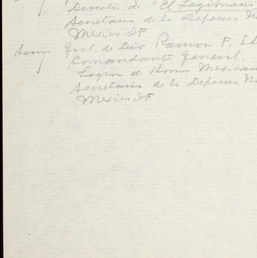 Director de "El Legionario
Secretaria de la Defensa N
México DF
Gral. de Div. Ramon F. It
Comandante General,
Legion de Honor Mexican
Secretaria de la Defensa N
México DF